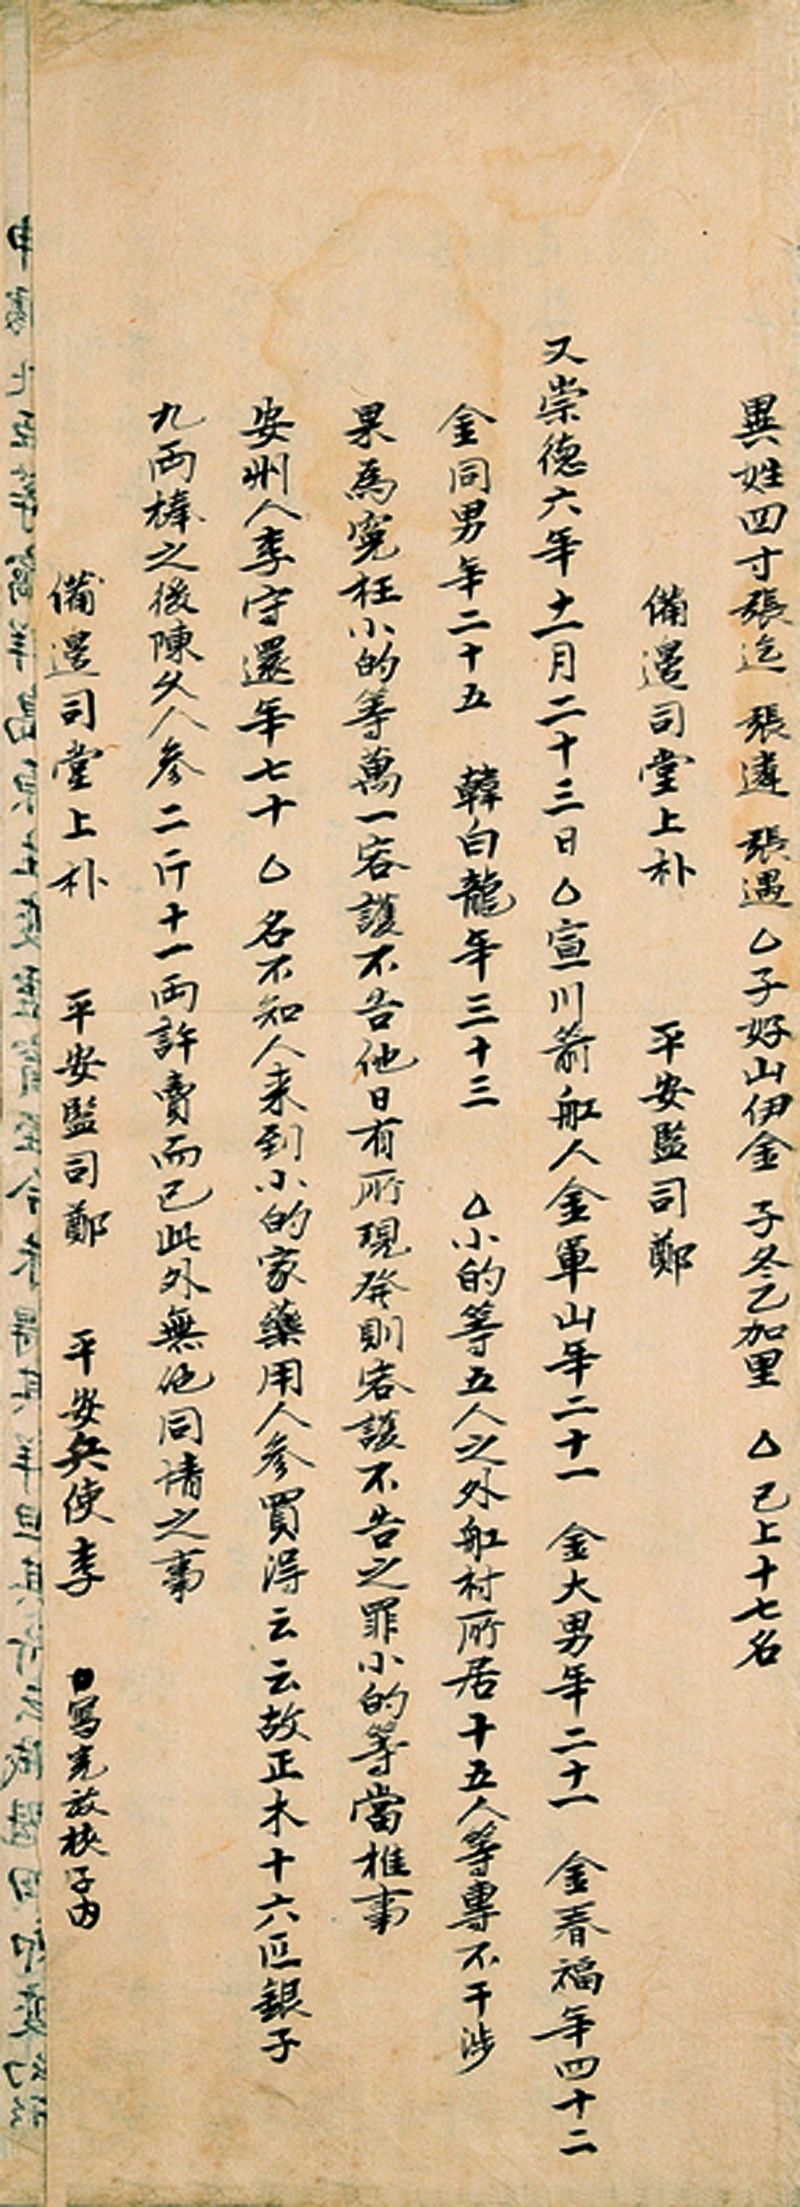 異姓四寸張迄 張遴 張遇 △子好山伊金 子冬乙加里 △已上十七名
備邊司堂上朴 平安監司鄭
又崇德六年十一月二十三日△宣川箭舡人金軍山年二十一 金大男年二十一 金春福年四十二
金同男年二十五 韓白龍年三十三 △小的等五人之外舡村所居十五人等專不干涉
果爲寃枉小的等萬一容護不告他日有所現發則容護不告之罪小的等當推事
安州人李守還年七十 △名不知人来到小的家藥用人參買得云云故正木十六匹銀子
九兩捧之後陳久人參二斤十一兩許賣而已此外無他同情之事
備邊司堂上朴 平安監司鄭 平安兵使李 寫完放柣子内